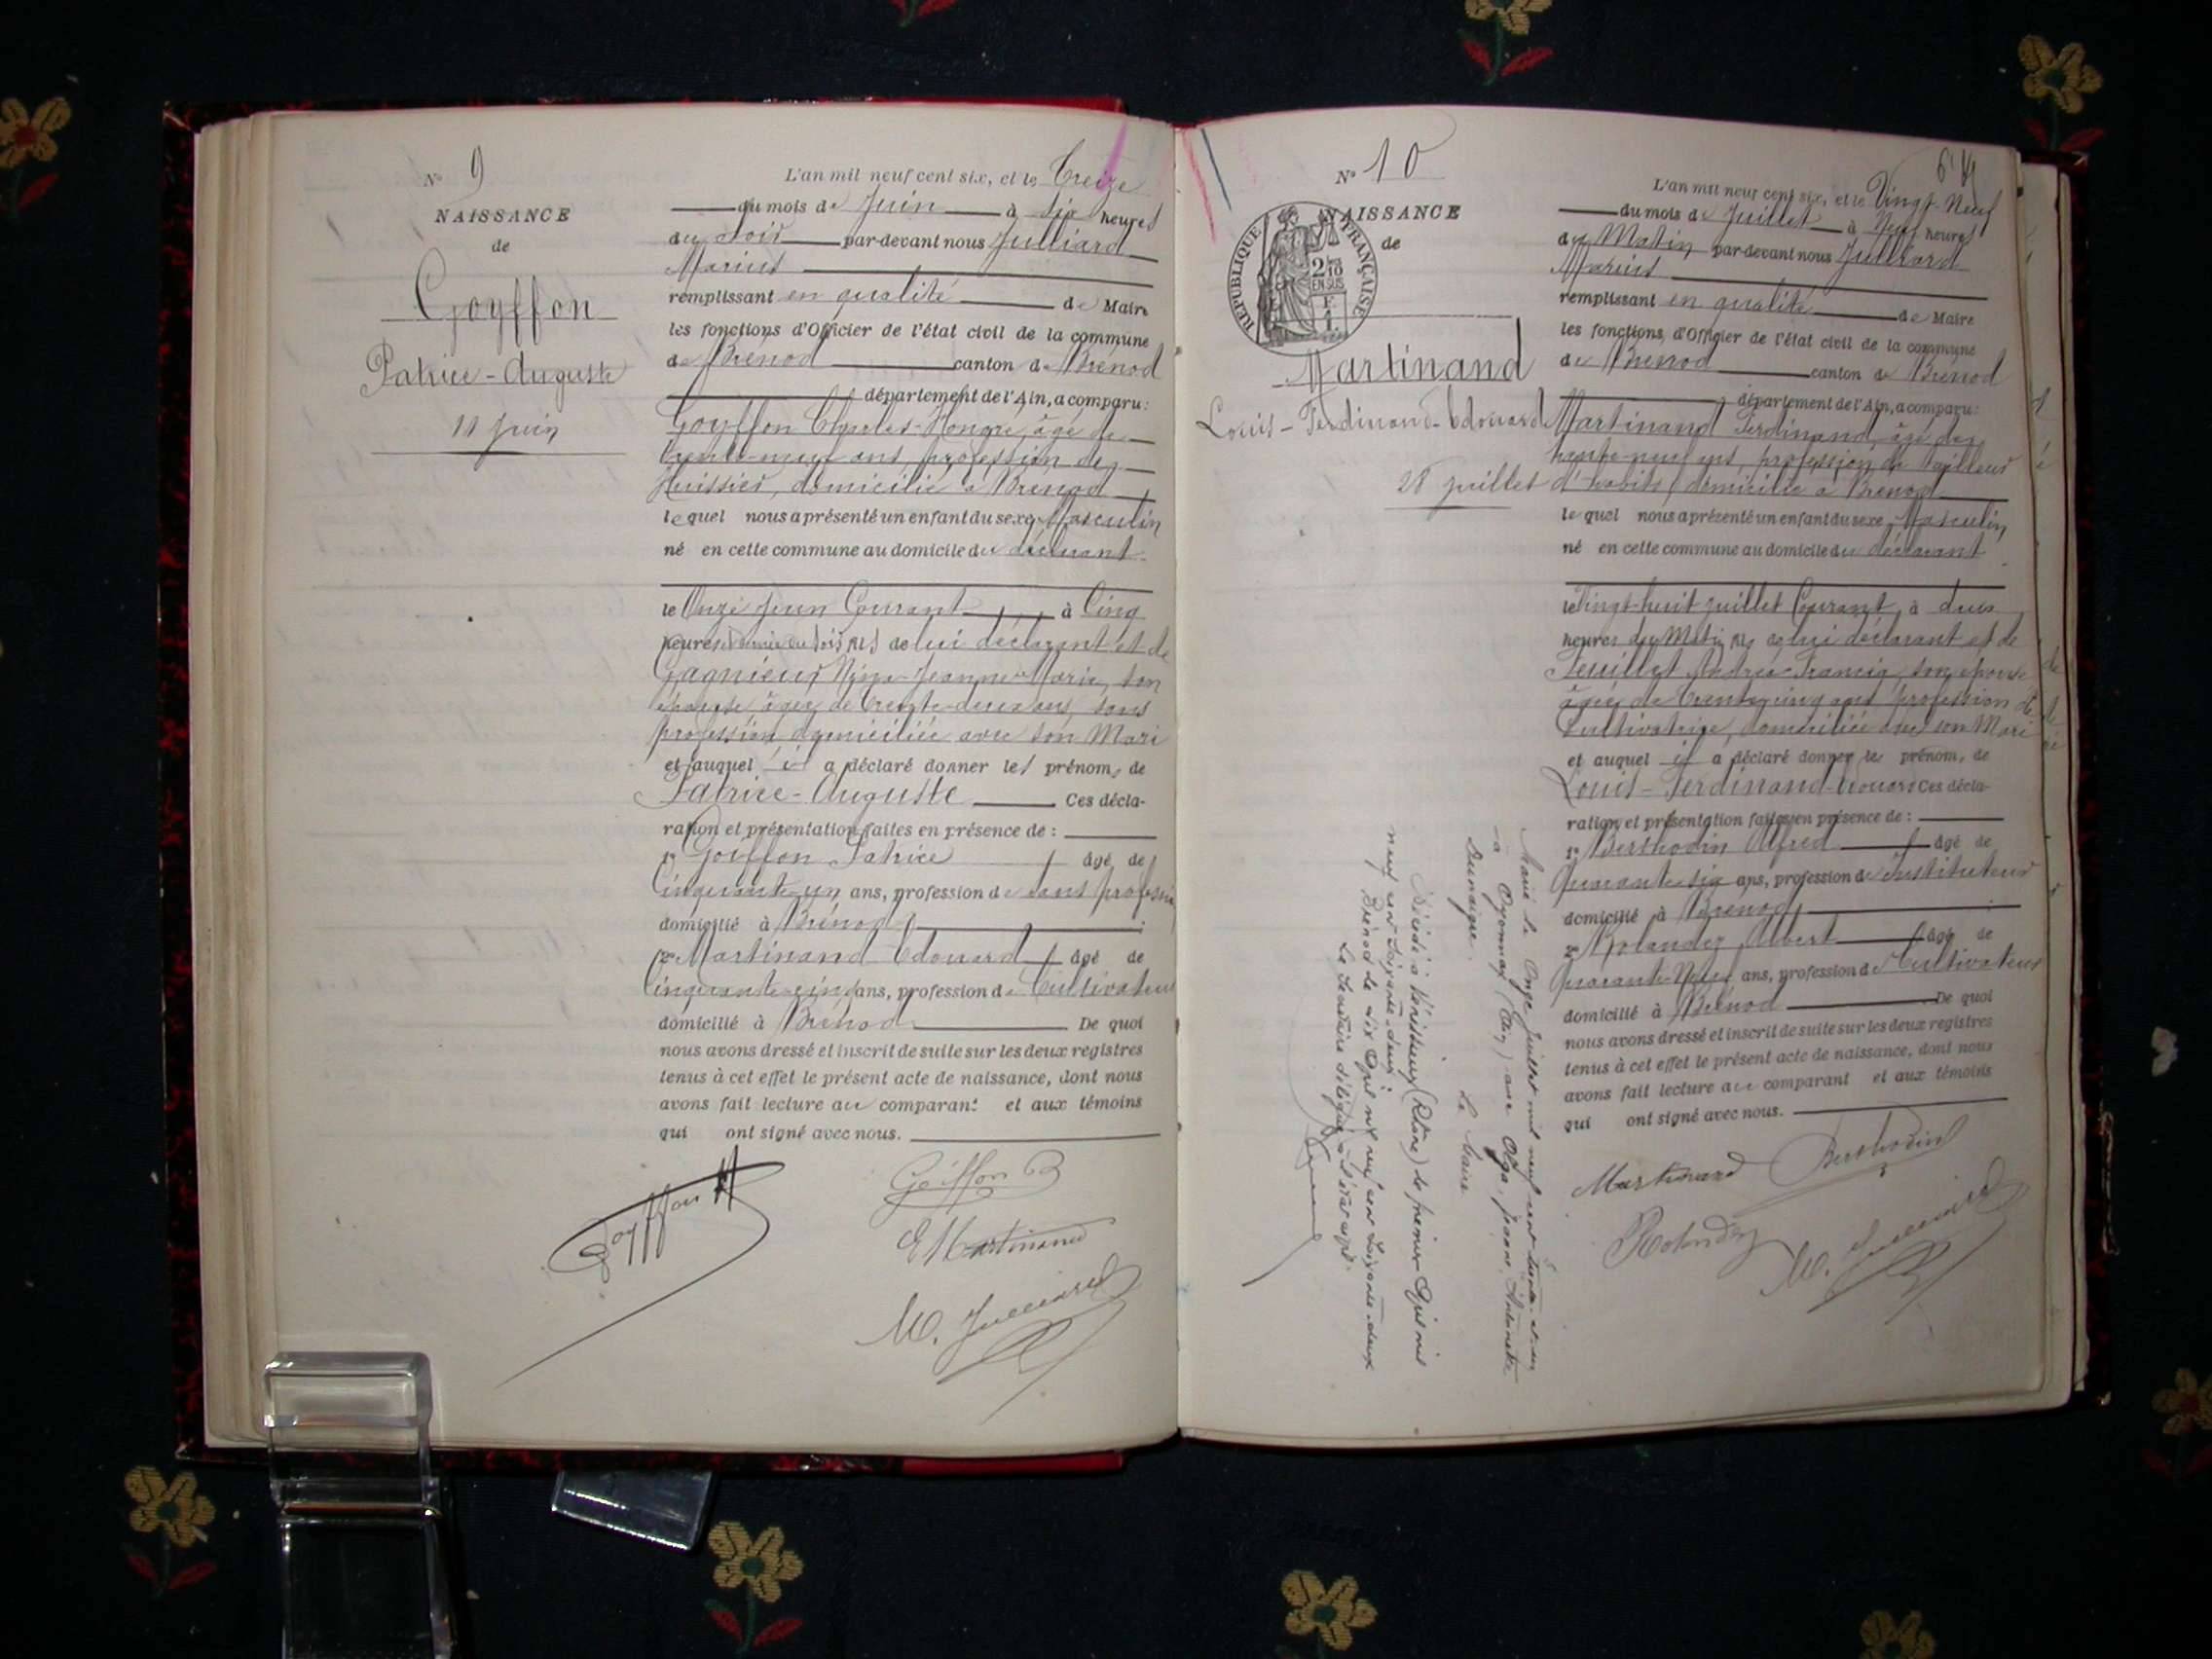 N° 9
NAISSANCE
de
Goyffon
Patrice-Auguste
11 Juin
L'an mil neuf cent six, et le Treize
du mois de Juin à Six heures
du Soir par-devant nous Julliard
Marius
remplissant en qualité de Maire
les fonctions d'Officier de l'état civil de la commune
de Brénod canton de Brénod
département de l'Ain, a comparu :
Goyffon Charles-Honoré, âgé de
trente-neuf ans, profession de
Huissier, domicilié à Brénod
lequel nous a présenté un enfant du sexe Masculin
né en cette commune au domicile du déclarant
le Onze Juin Courant à Cinq
heures du soir fils de lui déclarant et de
Jeanne-Marie, son
épouse, âgée de trente-deux ans, sans
profession, domiciliée avec son Mari
et auquel il a déclaré donner les prénoms de
Patrice-Auguste Ces décla-
ration et présentation faites en présence de :
1° Goiffon Patrice âgé de
Cinquante-un ans, profession de sans profession
domicilié à Brénod ;
2° Martinand Edouard âgé de
Cinquante-cinq ans, profession de Cultivateur
domicilié à Brénod De quoi
nous avons dressé et inscrit de suite sur les deux registres
tenus à cet effet le présent acte de naissance, dont nous
avons fait lecture au comparant et aux témoins
qui ont signé avec nous.
Goyffon H
Goiffon
E Martinand
M. Julliard
N° 10
NAISSANCE
de
RÉPUBLIQUE FRANÇAISE
2/10
EN SUS
F.
1.
Martinand
Louis-Ferdinand-Edouard
28 juillet
L'an mil neuf cent six, et le Vingt-Neuf
du mois de Juillet à Neuf heures
du Matin par-devant nous Julliard
Marius
remplissant en qualité de Maire
les fonctions d'Officier de l'état civil de la commune
de Brénod canton de Brénod
département de l'Ain, a comparu :
Martinand Ferdinand, âgé de
trente-neuf ans, profession de Tailleur
d'habits, domicilié à Brénod
lequel nous a présenté un enfant du sexe Masculin
né en cette commune au domicile du déclarant
le Vingt-huit Juillet Courant, à deux
heures du Matin fils de lui déclarant et de
son épouse
âgée de trente-cinq ans profession de
Cultivatrice, domiciliée avec son Mari
et auquel il a déclaré donner les prénoms de
Louis-Ferdinand-Edouard Ces décla-
ration et présentation faites en présence de :
1° Berthodin Alfred âgé de
Quarante-six ans, profession de Instituteur
domicilié à Brénod
2° Rolandez Albert âgé de
Quarante-Neuf ans, profession de Cultivateur
domicilié à Brénod De quoi
nous avons dressé et inscrit de suite sur les deux registres
tenus à cet effet le présent acte de naissance, dont nous
avons fait lecture au comparant et aux témoins
qui ont signé avec nous.
Martinand Berthodin
Rolandez M. Julliard
Marié le Onze Juillet mil neuf cent trente
à Oyonnax (Ain) avec Olga, Jeanne, Antoinette
Dumaigne. Le Maire
Décédé à Vénissieux (Rhône) le premier Avril mil
neuf cent soixante-deux
Brénod le dix Avril mil neuf cent soixante-deux
Le Secrétaire délégué